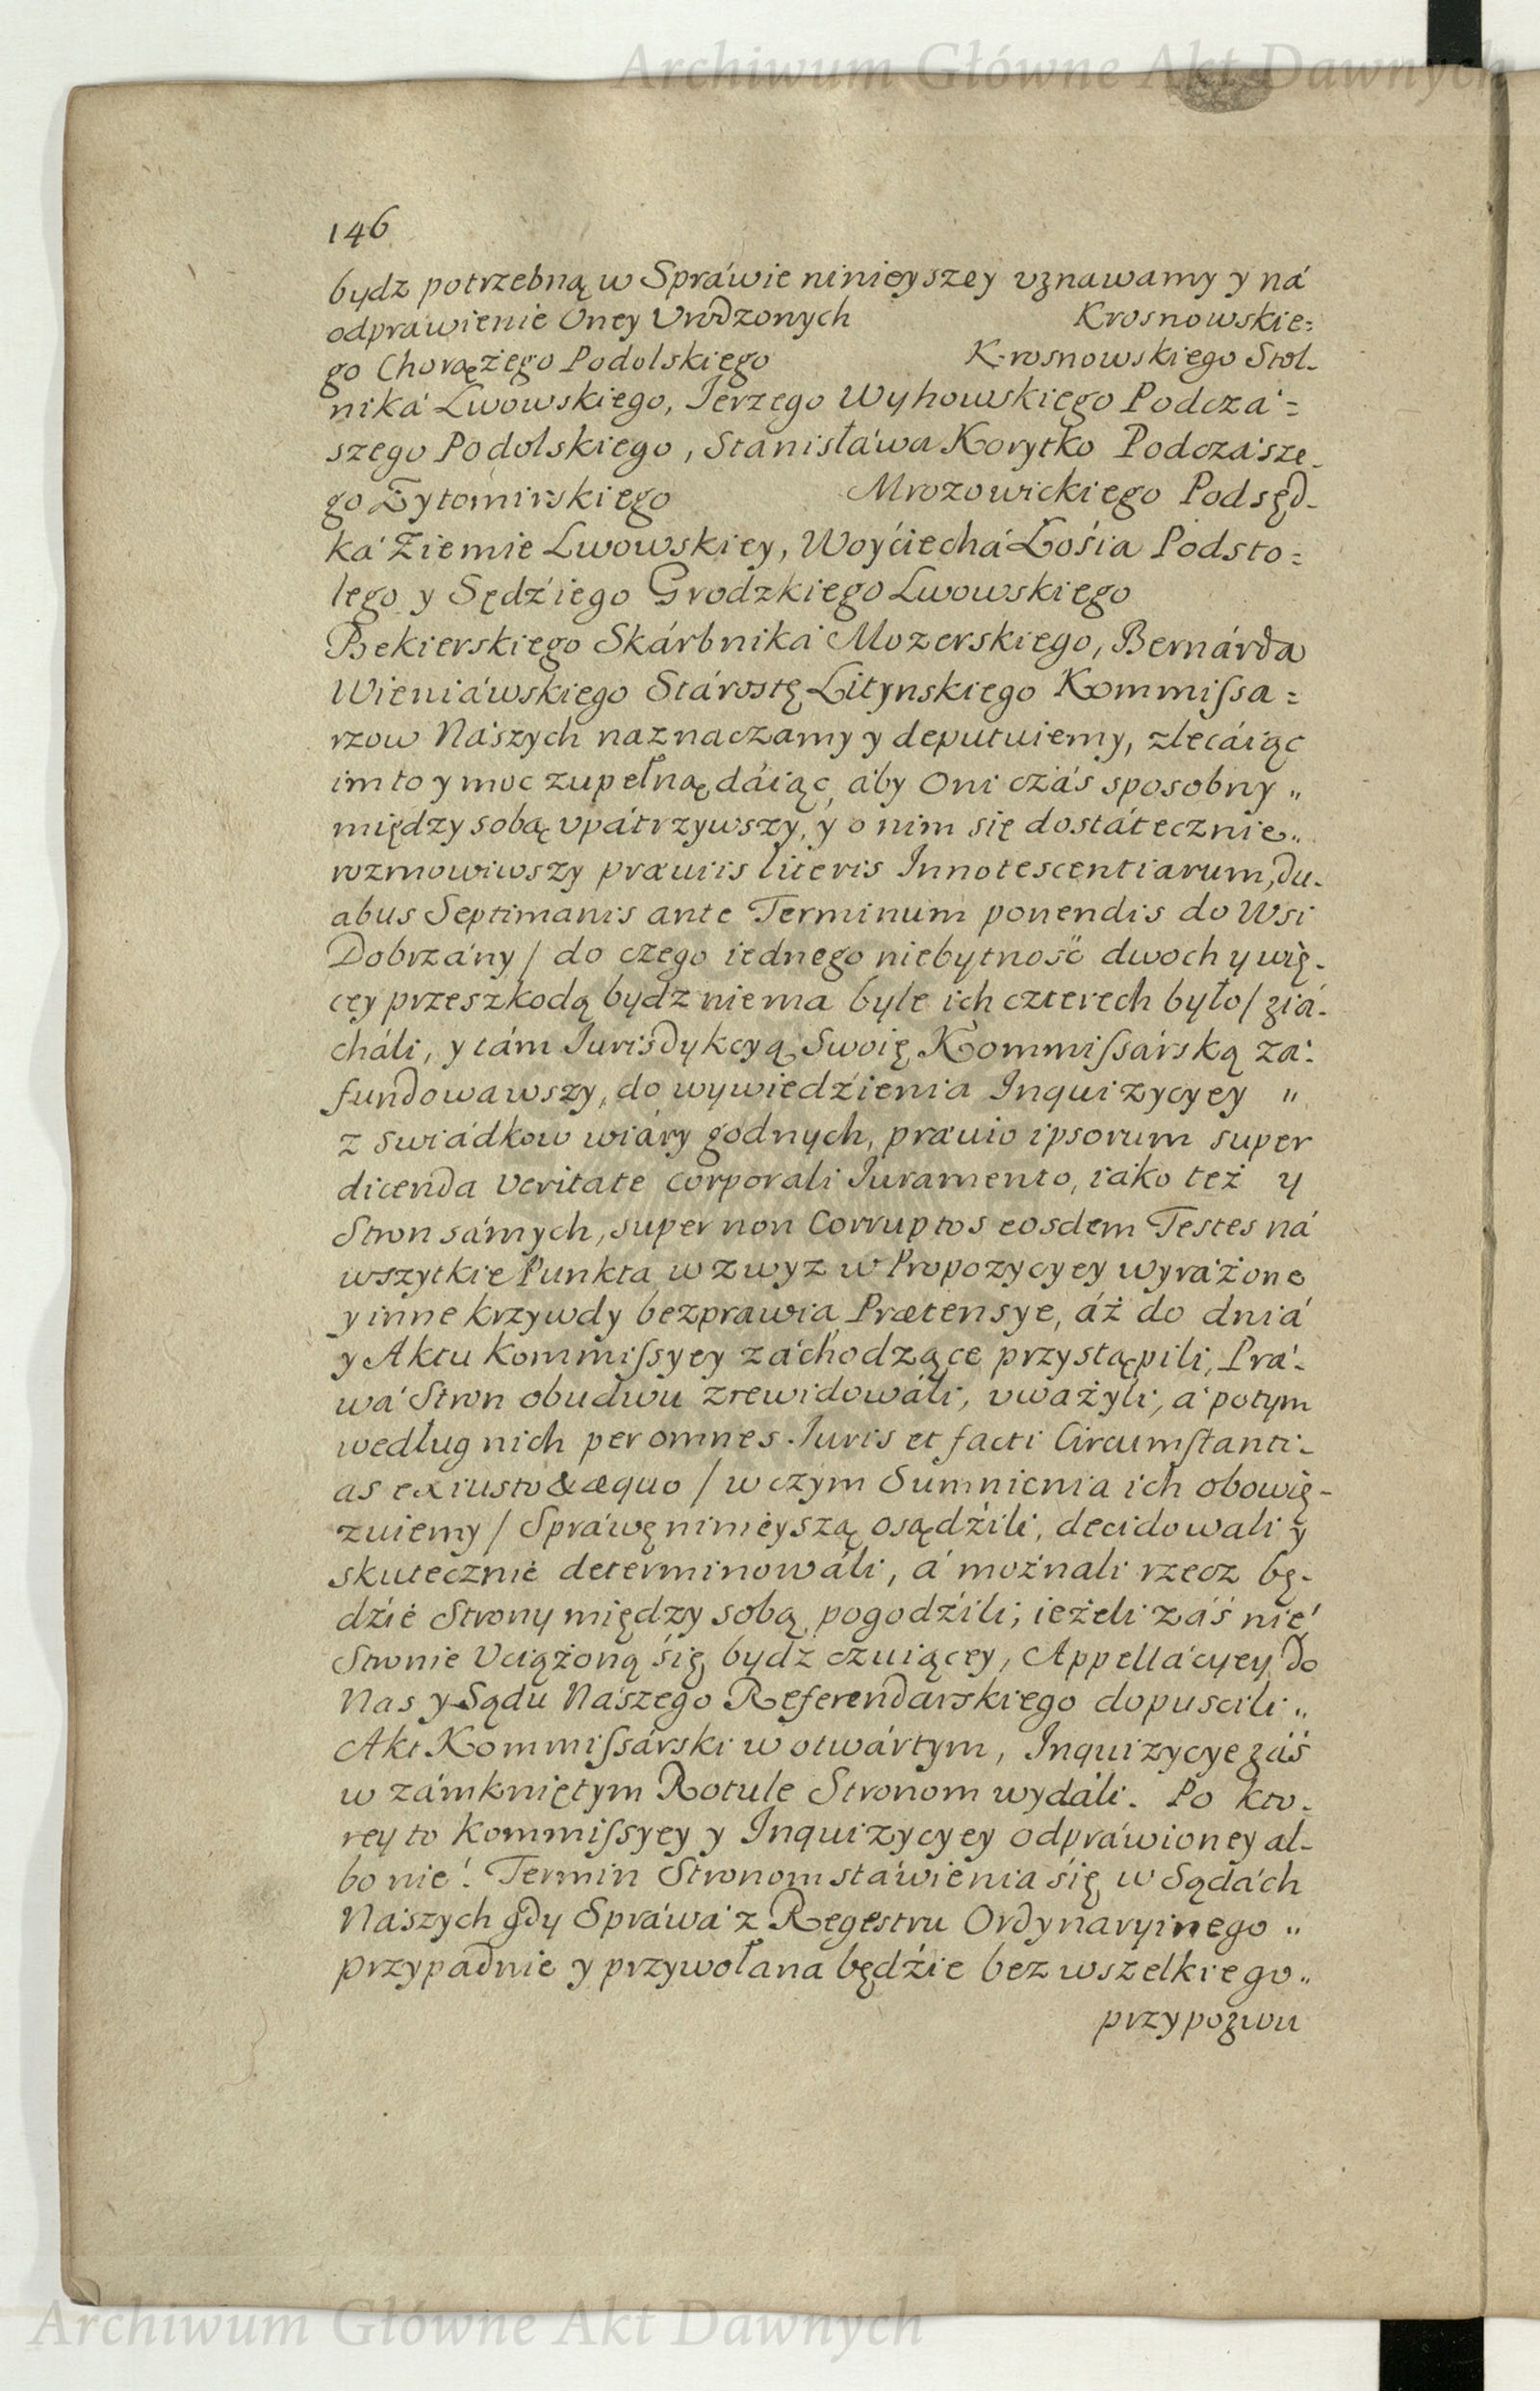 Archiwum Główne Akt Dawnych
146
bydz potrzebną w Spráwie ninieyszey vznawamy y ná
odprawienie Oney Vrodzonych Krosnowskie=
go Chorążego Podolskiego Krosnowskiego Stol-
niká Lwowskiego, Jerzego Wyhowskiego Podczá=
szego Podolskiego, Stanisłáwa Korytko Podczásze-
go Żytomirskiego Mrozowickiego Podsęd-
ká Ziemie Lwowskiey, Woyćiechá Łośia Podsto=
lego y Sędźiego Grodzkiego Lwowskiego
Bekierskiego Skárbniká Mozerskiego, Bernárda
Wieniáwskiego Stárostę Litynskiego Kommiſsa=
rzow Nászych naznaczamy y deputuiemy, zlecáiąc
im to y moc zupełną dáiąc, áby Oni czás sposobny "
między sobą vpátrzywszy, y o nim się dostátecznie "
rozmowiwszy præuiis literis Innotescentiarum, du-
abus Septimanis ante Terminum ponendis do Wsi
Dobrzány / do czego iednego niebytność dwoch y wię-
cey przeszkodą bydz niema byle ich czterech było / ziá-
cháli, y tám Jurisdykcyą Swoię Kommiſsárską zá-
fundowawszy, do wywiedźienia Inquizycyey "
z swiádkow wiáry godnych, præuio ipsorum super
dicenda veritate corporali Juramento, iáko też y
Stron sámych, super non Corruptos eosdem Testes ná
wszytkie Punkta wzwyz w Propozycyey wyráżone
y inne krzywdy bezprawia Prætensye, áż do dniá
y Aktu Kommiſsyey záchodzące przystąpili, Prá-
wá Stron obudwu zrewidowáli, vważyli, á potym
według nich per omnes Juris et facti Circumſtanti-
as ex iusto & æquo / w czym Sumnienia ich obowię-
zuiemy / Spráwę ninieyszą osądźili, decidowali y
skutecznie determinowáli, á możnali rzecz bę-
dźie Strony między sobą pogodźili; ieżeli záś nie
Stronie Vciążoną śię bydź czuiącey, Appellácyey do
Nas y Sądu Nászego Referendarskiego dopuscili "
Akt Kommiſsárski w otwártym, Inquizycye záś
w zámkniętym Rotule Stronom wydáli. Po kto-
rey to Kommiſsyey y Inquizycyey odpráwioney al-
bo nie! Termin Stronom stáwienia śię w Sądách
Nászych gdy Spráwá z Regestru Ordynaryinego "
przypadnie y przywołana będźie bez wszelkiego "
przypozwu
Archiwum Główne Akt Dawnych